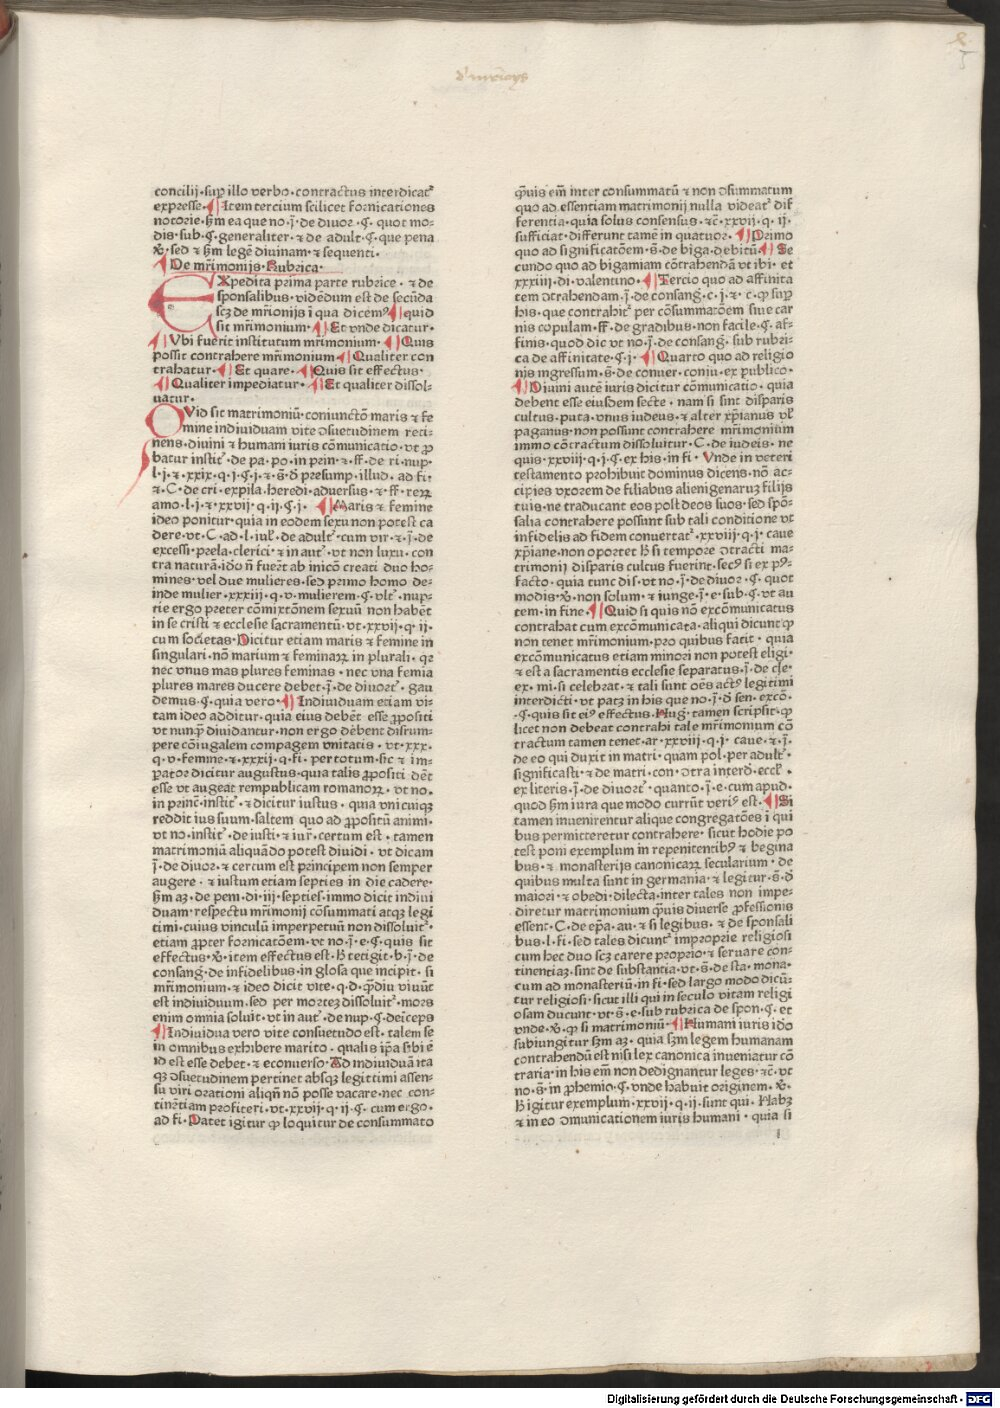 concilij·sup illo verbo·contractus interdicat᷑
expresse·Item tercium scilicet fornicationes
notorie·scḋm ea que no·j̄·de diuor·ꝯ·quot mo-
dis·sub·§·generaliter·⁊ de adult·§·que pena
℣·sed ⁊ scḋm legē diuinam·⁊ sequenti·
De mr̄imonijs·Rubrica·
EXpedita prima parte rubrice·⁊ de
sponsalibus·videdum est de secūda
scꝫ de mr̄ionijs ī qua dicemꝰ quid
sit mr̄imonium·Et vnde dicatur·
Vbi fuerit institutum mr̄imonium·Quis
possit contrahere mr̄imonium Qualiter con
trahatur·Et quare·Quis sit effectus·
Qualiter impediatur·Et qualiter dissol-
uatur·
QVid sit matrimoniū·coniunctōn maris ⁊ fe
mine indiuiduam vite ↄsuetudinem reti-
nens·diuini ⁊ humani iuris cōmunicatio·vt ꝓ
batur instit᷑·de pa·po·in prin·⁊·ff·de ri·nup·
l·j·⁊·xxix·q·j·§·j·⁊·s̄·d̄ presump·illud·ad fi·
⁊·C·de cri·expila·heredi·aduersus·⁊·ff·reꝝ
amo·l·j·⁊·xxvij·q·ij·§·j· Maris ⁊ femine
ideo ponitur·quia in eodem sexu non potest ca
dere·vt·C·ad·l·iul᷑·de adult᷑·cum vir·⁊·j̄·de
excessi·prela·clerici·⁊ in aut᷑·vt non luxu·con
tra naturā·ido n̄ fuer̄t ab inicō creati duo ho-
mines·vel due mulieres·sed primo homo de-
inde mulier·xxxiij·q·v·mulierem·§·vlt᷑·nup-
tie ergo preter cōmixtōnem sexuū non habēt
in se cristi ⁊ ecclesie sacramentū·vt·xxvij·q·ij·
cum societas·Dicitur etiam maris ⁊ femine in
singulari·nō marium ⁊ feminaꝝ in plurali·qꝛ
nec vnus mas plures feminas·nec vna femia
plures mares ducere debet·j̄·de diuort᷑·gau
demus·§·quia vero·Indiuiduam etiam vi-
tam ideo additur·quia eius debēt esse ꝓpositi
vt nunꝗ̄ diuidantur·non ergo debent disrum-
pere cōiugalem compagem vnitatis·vt·xxx·
q·v·femine·⁊·xxxij·q·fi·per totum·sic ⁊ im-
perator dicitur augustus·quia talis ꝓpositi dēt
esse vt augeat rempublicam romanoꝝ·vt no·
in princ̄·instit᷑·⁊ dicitur iustus·quia vnicuiqꝫ
reddit ius suum·saltem quo ad ꝓpositū animi·
vt no·instit᷑·de iusti·⁊ iur᷑·certum est·tamen
matrimoniū aliquādo potest diuidi·vt dicam
j̄·de diuor·⁊ certum est principem non semper
augere·⁊ iustum etiam septies in die cadere·
scḋm aꝫ·de pem·di·iij·septies·immo dicit indiui
duam·respectu mr̄imonij cōsummati atqꝫ legi
timi·cuius vinculū imperpetuū non dissoluit᷑·
etiam ꝓpter fornicatōem·vt no·j̄·e·§·quis sit
effectus·℣·item effectus est·hͦ tetigit·b·j̄·de
consang·de infidelibus·in glosa que incipit·si
mr̄imonium·⁊ ideo dicit vite·q·d·ꝗ̄diu viuūt
est indiuiduum·sed per mortez dissoluit᷑·mors
enim omnia soluit·vt in aut᷑·de nup·§·deīceps
Indiuidua vero vite consuetudo est·talem se
in omnibus exhibere marito·qualis ip̄a sibi ē
id est esse debet·⁊ econuerso·Ad indiuiduā ita
qꝫ ↄsuetudinem pertinet absqꝫ legittimi assen-
su viri orationi aliqn̄ nō posse vacare·nec con-
tinētiam profiteri·vt·xxvij·q·ij·§·cum ergo·
ad fi·Patet igitur ꝙ loquitur de consummato
ꝗ̄uis em̄ inter consummatū ⁊ non ↄsummatum
quo ad essentiam matrimonij nulla videat᷑ dif
ferentia·quia solus consensus·⁊c̄·xxvij·q·ij·
sufficiat·differunt tamē in quatuor·Primo
quo ad significatōem·s̄·de biga·debitū·Se
cundo quo ad bigamiam cōtrahendā vt ibi·et
xxxiiij·di·valentino·Tercio quo ad affinita
tem ↄtrahendam·j̄·de consang·c·j·⁊·c·ꝙ sup
his·que contrahit᷑ per cōsummatōem siue car
nis copulam·ff·de gradibus·non facile·§·af-
finis·quod dic vt no·j̄·de consang·sub rubri-
ca de affinitate·§·j·Quarto quo ad religio
nis ingressum·s̄·de conuer·coniu·ex publico·
Diuini autē iuris dicitur cōmunicatio·quia
debent esse eiusdem secte·nam si sint disparis
cultus·puta·vnus iudeus·⁊ alter xp̄ianus vl᷑
paganus·non possunt contrahere mr̄imonium
immo cōtractum dissoluitur·C·de iudeis·ne
quis·xxviij·q·j·§·ex his·in fi·Vnde in veteri
testamento prohibuit dominus dicens·nō ac-
cipies vxorem de filiabus alienigenaruꝫ filijs
tuis·ne traducant eos post deos suos·sed spō-
salia contrahere possunt sub tali conditione vt
infidelis ad fidem conuertat᷑·xxviij·q·j·caue
xp̄iane·non oportet hͦ si tempore ↄtracti ma-
trimonij disparis cultus fuerint·secꝰ si ex pꝰ-
facto·quia tunc dis·vt no·j̄·de diuor·§·quot
modis·℣·non solum·⁊ iunge·j̄·e·sub·§·vt au
tem·in fine·Quid si quis nō excōmunicatus
contrahat cum excōmunicata·aliqui dicunt ꝙ
non tenet mr̄imonium·pro quibus facit·quia
excōmunicatus etiam minori non potest eligi·
⁊ est a sacramentis ecclesie separatus·j̄·de cle·
ex·mi·si celebrat·⁊ tali sunt oēs actꝰ legitimi
interdicti·vt patꝫ in his que no·j̄·d̄ sen·excō·
·§·quis sit eiꝰ effectus·Hug·tamen scripsit·ꝙ
licet non debeat contrahi tale mr̄imonium cō
tractum tamen tenet·ar·xxviij·q·j·caue·⁊·j̄·
de eo qui duxit in matri·quam pol·per adult᷑·
significasti·⁊ de matri·con·ↄtra interd̄·eccl᷑·
ex literis·j̄·de diuort᷑·quanto·j̄·e·cum apud·
quod scḋm iura que modo currūt veriꝰ est·Si
tamen inuenirentur alique congregatōes ī qui
bus permitteretur contrahere·sicut hodie po
test poni exemplum in repenitentibꝰ ⁊ begina
bus·⁊ monasterijs canonicaꝝ secularium·de
quibus multa sunt in germania·⁊ legitur·s̄·d̄
maiori·⁊ obedi·dilecta·inter tales non impe-
diretur matrimonium ꝗ̄uis diuerse ꝓfessionis
essent·C·de ep̄a·au·⁊ si legibus·⁊ de sponsali
bus·l·fi·sed tales dicunt᷑ improprie religiosi
cum hec duo scꝫ carere proprio·⁊ seruare con-
tinentiaꝫ·sint de substantia·vt·s̄·de sta·mona·
cum ad monasteriū·in fi·sed largo modo dicū-
tur religiosi·sicut illi qui in seculo vitam religi
osam ducunt·vt·s̄·e·sub rubrica de spon·§·et
vnde·℣·ꝙ si matrimoniū·Humani iuris ido
subiungitur scḋm aꝫ·quia scḋm legem humanam
contrahendū est nisi lex canonica inueniatur cō
traria·in his em̄ non dedignantur leges·⁊c̄·vt
no·s̄·in ꝓhemio·§·vnde habuit originem·℣·
hͦ igitur exemplum·xxvij·q·ij·sunt qui·Habꝫ
⁊ in eo ↄmunicationem iuris humani·quia si
Digitalisierung gefördert durch die Deutsche Forschungsgemeinschaft - DFG